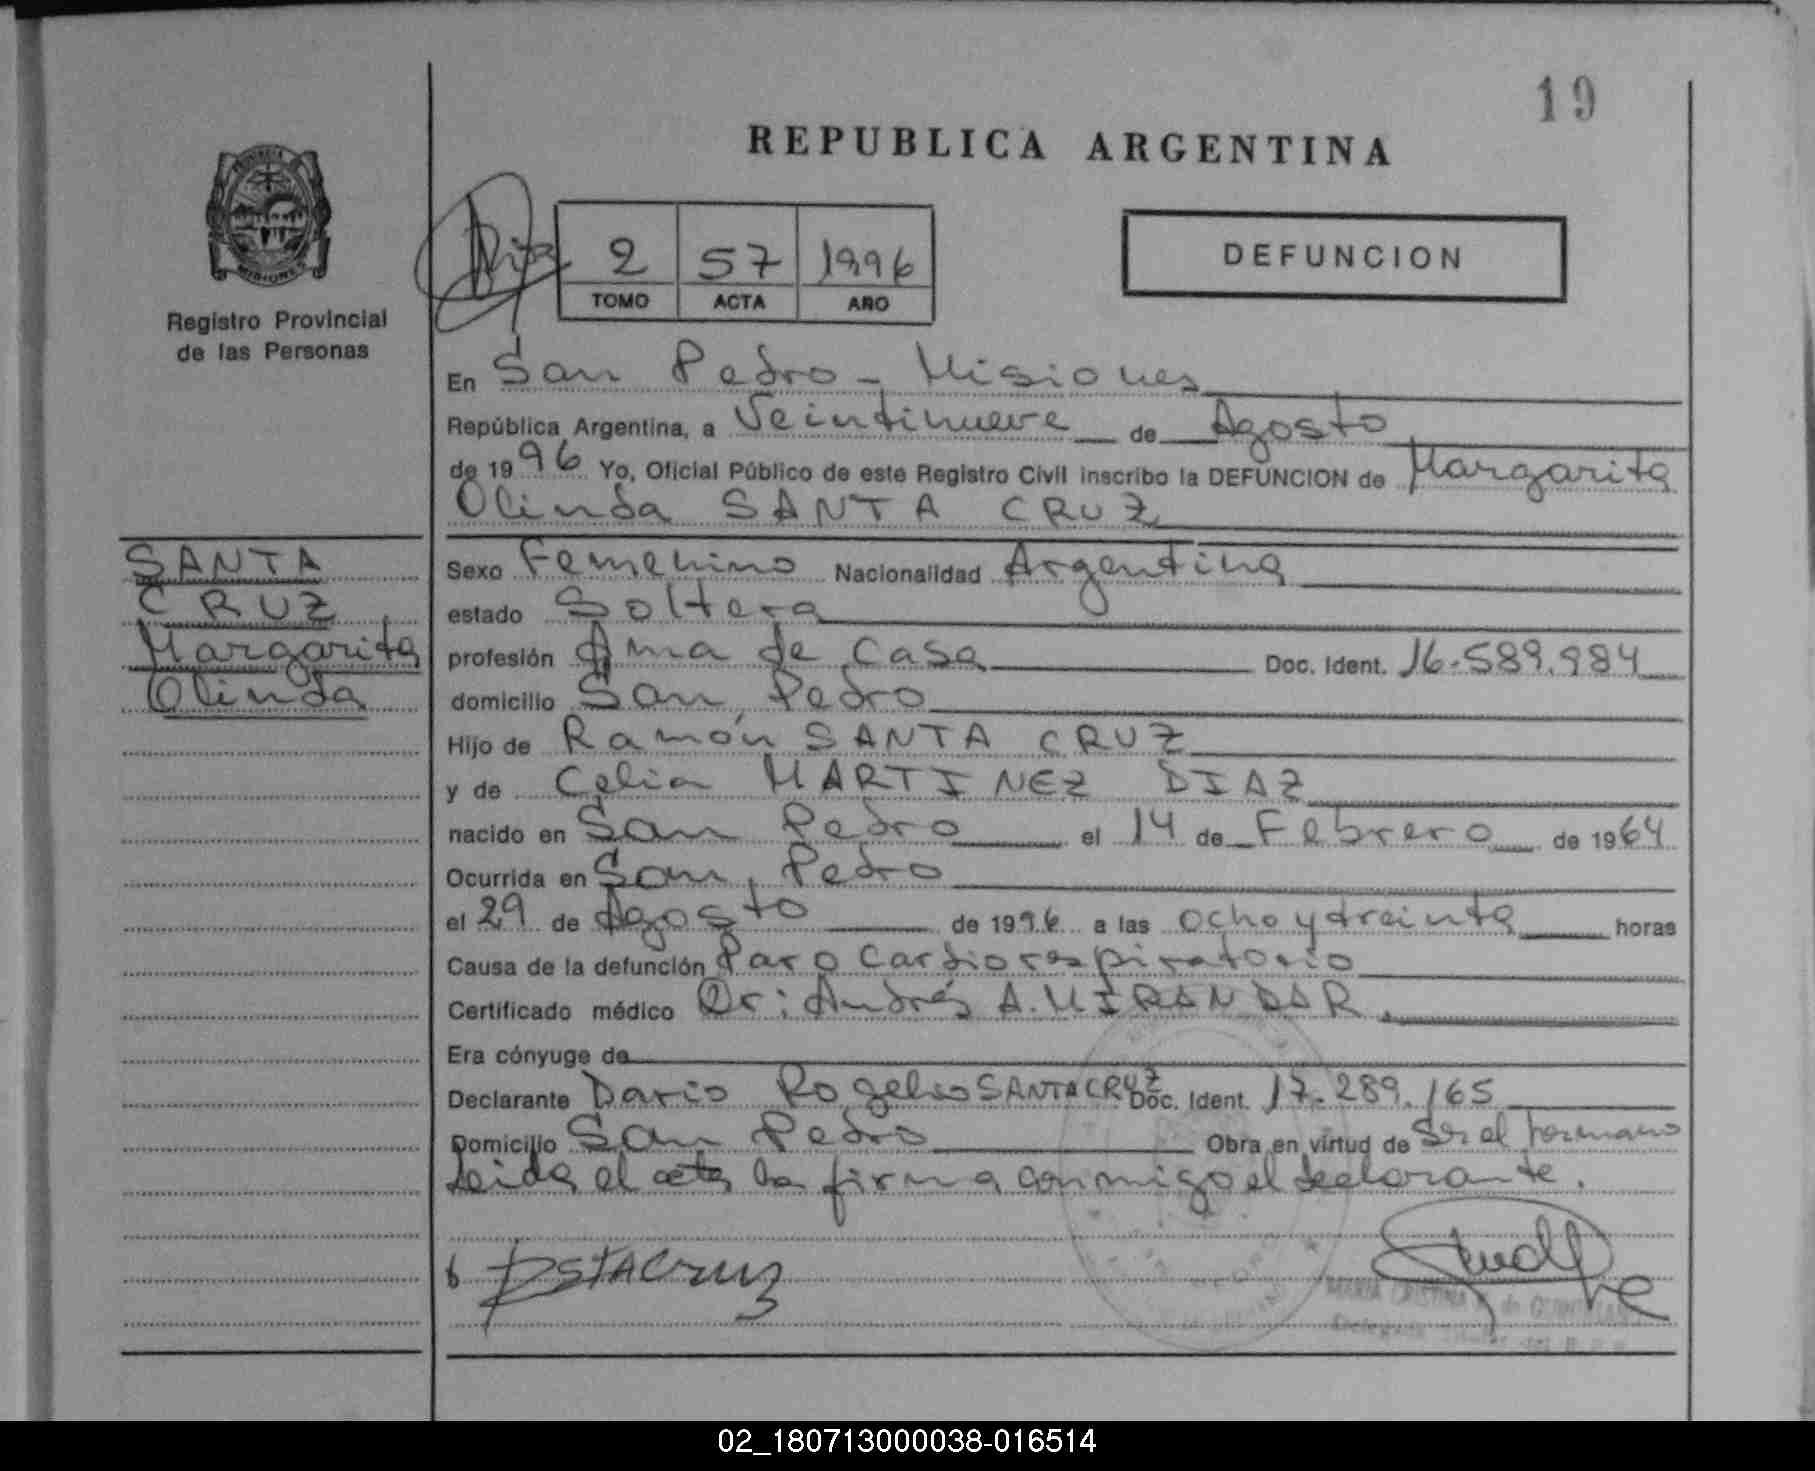 19
REPUBLICA ARGENTINA
2 57 1996
TOMO ACTA AÑO
DEFUNCION
Registro Provincial
de las Personas
En San Pedro - Misiones
República Argentina, a Veintinueve de Agosto
de 1996 Yo, Oficial Público de este Registro Civil inscribo la DEFUNCION de Margarita
Olinda SANTA CRUZ
SANTA
CRUZ
Margarita
Olinda
Sexo Femenino Nacionalidad Argentina
estado Soltera
profesión Ama de Casa Doc. Ident. 16.589.984
domicilio San Pedro
Hijo de Ramón SANTA CRUZ
y de Celia MARTINEZ DIAZ
nacido en San Pedro el 14 de Febrero de 1964
Ocurrida en San Pedro
el 29 de Agosto de 1996 a las ocho y treinta horas
Causa de la defunción Paro Cardiorespiratorio
Certificado médico Dr: Andrés A. MIRANDAR
Era cónyuge de
Declarante Dario Rogelio SANTA CRUZ Doc. Ident. 17.289.165
Domicilio San Pedro Obra en virtud de Ser el hermano
Leida el acta la firma conmigo el declarante.
DSTACruz
MARIA CRISTINA de
02_180713000038-016514